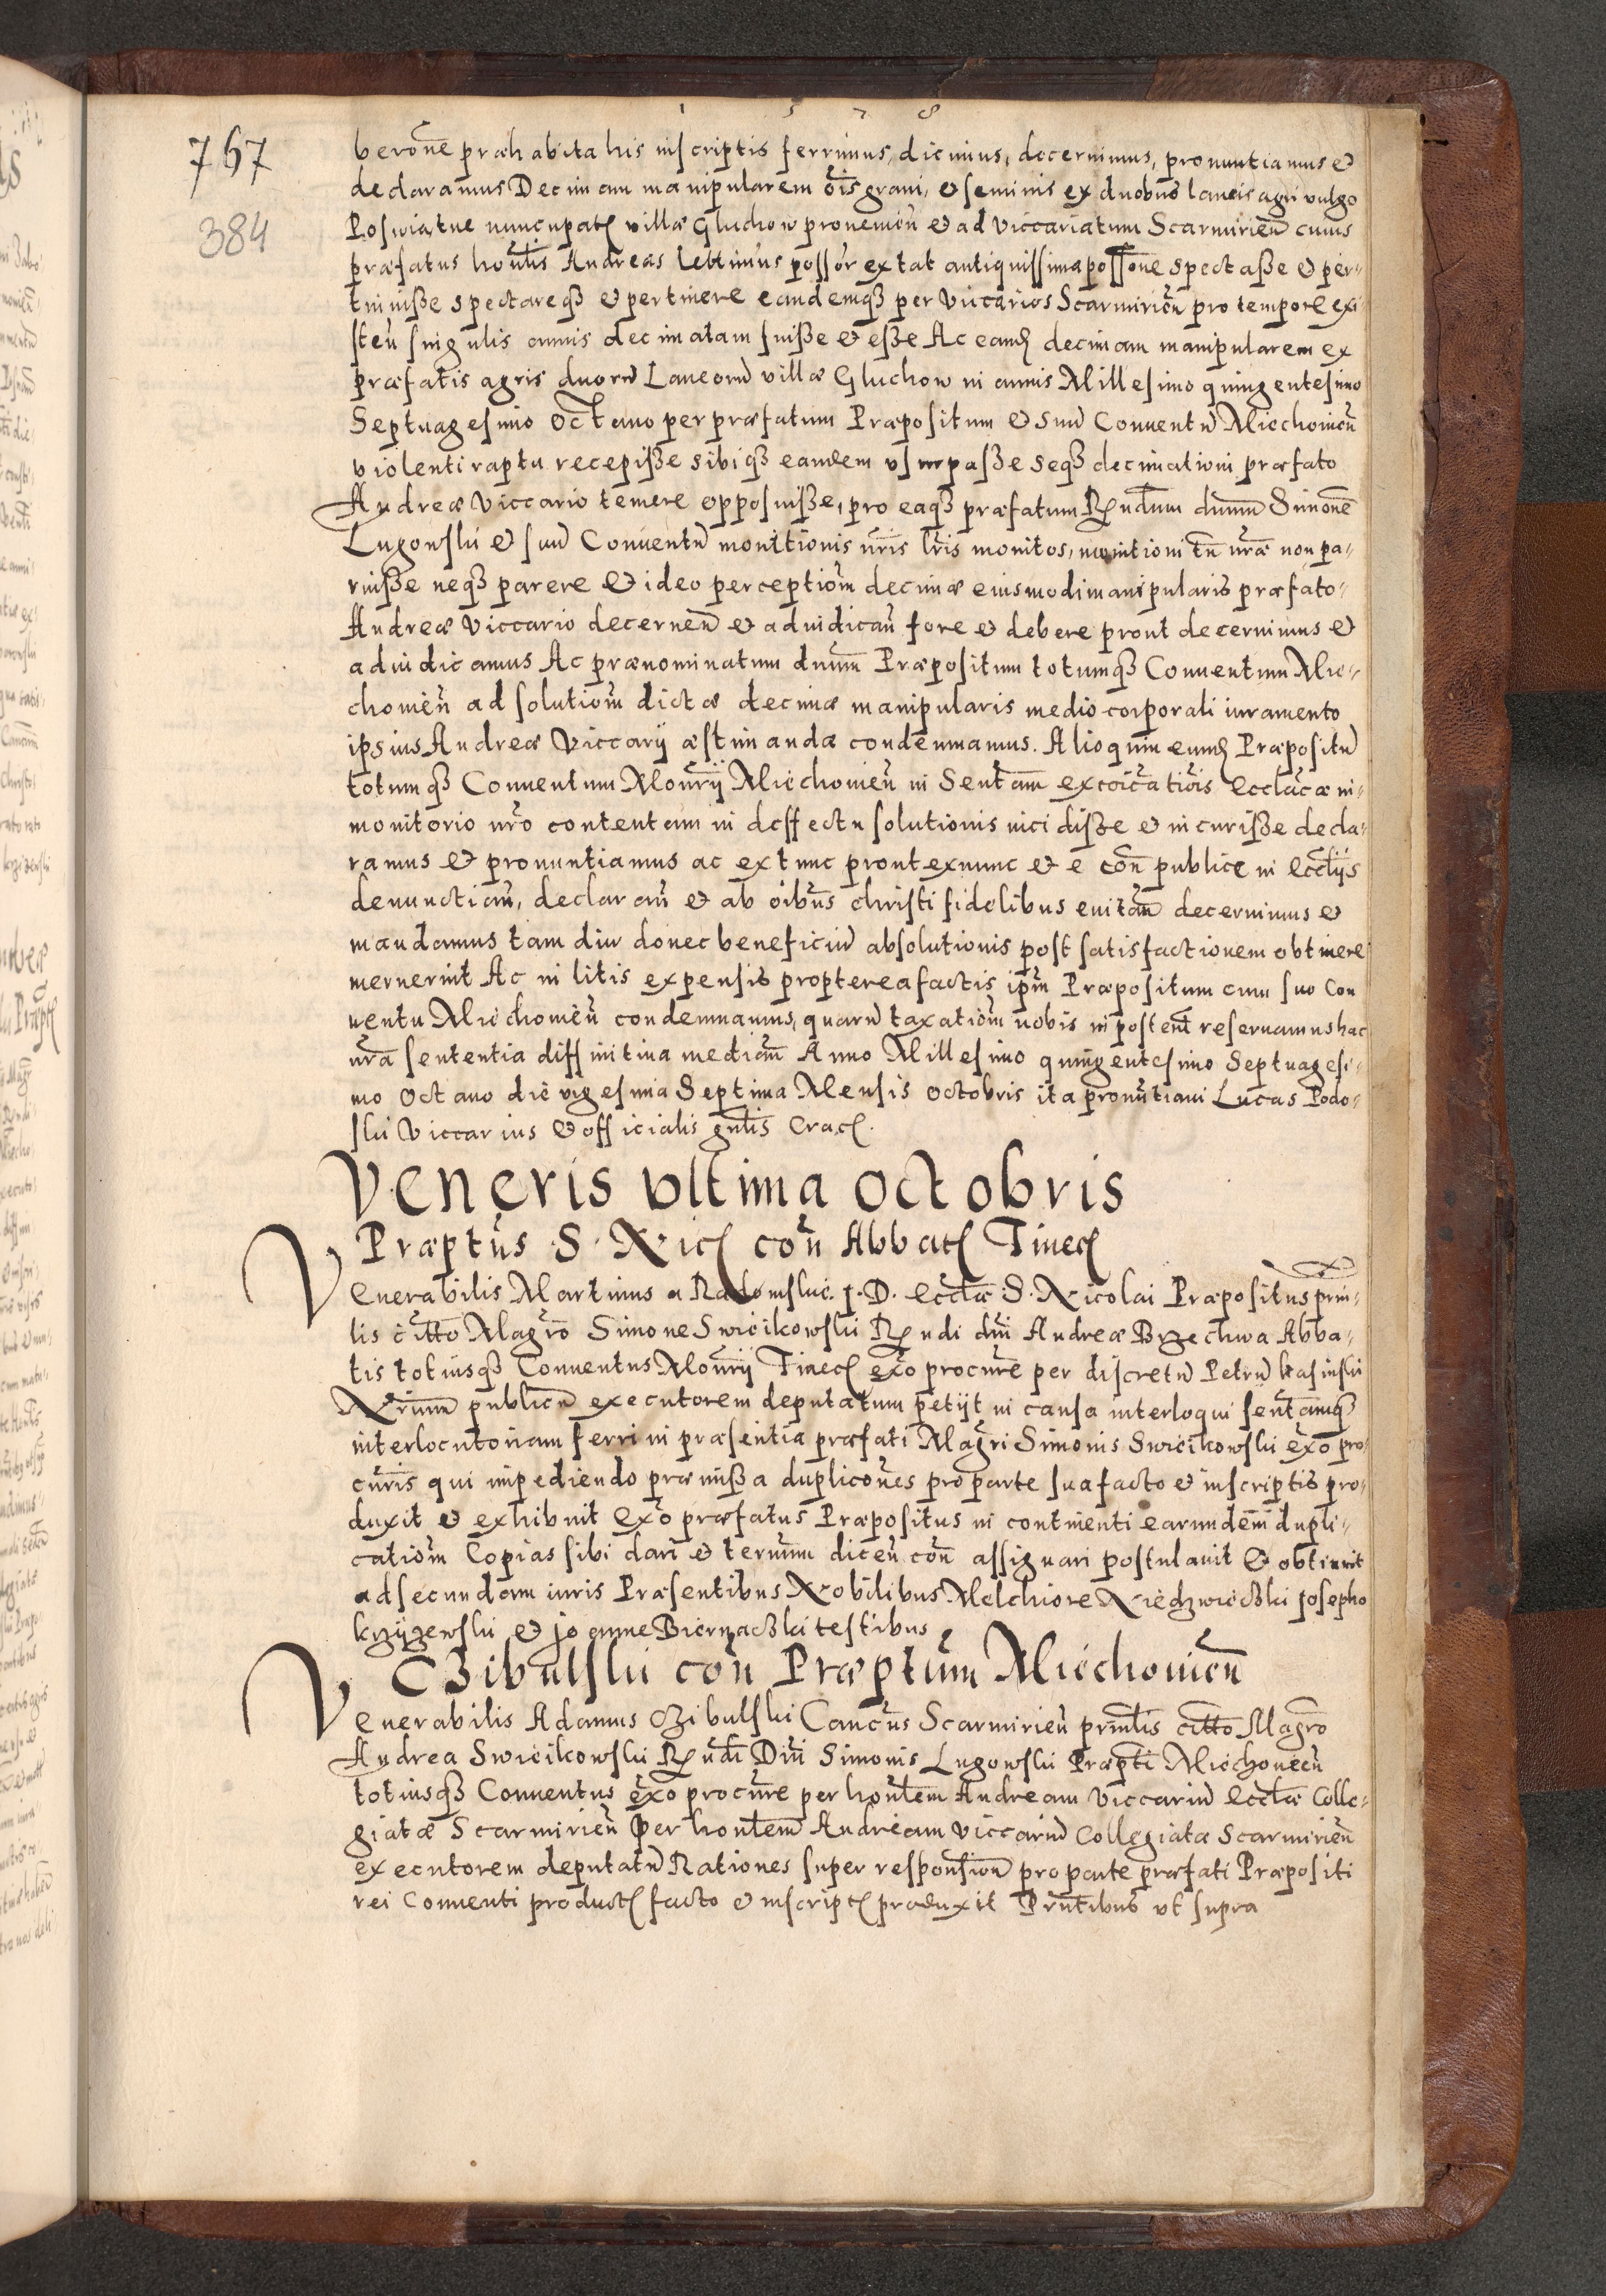 1 5 7 8
767
384
berone præhabita his inscriptis ferrimus, dicimus, decernimus, pronuntiamus et
declaramus Decimam manipularem ois grani, et seminis ex duobus laneis agri vulgo
Poswiatne nuncupat villæ Gluchow provenien et ad Viccariatum Scarmirien cuius
præfatus honlis Andreas lebtimus possor extat antiquissima possone spectasse et per-
tinuisse spectareq et pertinere eandemq per Viccarios Scarmirien pro tempore exi
sten singulis annis decimatam fuisse et esse Ac eand decimam manipularem ex
præfatis agris duoru Laneoru villæ Gluchow in annis Millesimo quingentesimo
Septuagesimo Octavo per præfatum Præpositum et suu Conventu Miechovien
violenti raptu recepisse sibiq eandem usurpasse seq decimationi præfato
Andreæ Viccario temere opposuisse, pro eaq præfatum Rndum dnum Simone
Lugowski et suu Conventu monitionis nris lris monitos, monitioni tn nræ non pa-
ruisse neq parere Et ideo perceptiom decimæ eiusmodi manipularis præfato-
Andreæ Viccario decernen et adiudican fore et debere prout decernimus et
adiudicamus Ac prænominatum dnum Præpositum totumq Conventum Mie-
chovien ad solutiom dictæ decimæ manipularis medio corporali iuramento
ipsius Andreæ Viccarij æstimandæ condemnamus. Alioquin eund Præpositu
totumq Conventum Monrij Miechovien in Sentam excoicatiois Ecclacæ in-
monitorio nro contentam in deffectu solutionis incidisse et incurisse decla-
ramus et pronuntiamus ac ex tunc prout ex nunc et e con publice in ecclijs
denunctian, declaran et ab oibus christi fidelibus evitan decernimus et
mandamus tam diu donec beneficiu absolutionis post satisfactionem obtinere
meruerint Ac in litis expensis propterea factis ipm Præpositum cum suo Con
ventu Miechovien condemnamus, quaru taxatiom nobis in posten reservamus hac
nra sententia diffinitiva median Anno Millesimo quingentesimo Septuagesi-
mo Octavo die vigesima Septima Mensis octobris ita pronuntiavi Lucas Podo-
ski Viccarius et officialis gnlis Crac.
Veneris ultima octobris
Præptus S. Nic con Abbat Tinec
Venerabilis Martinus a Radomsko. J. D. Ecclæ S. Nicolai Præpositus prin-
lis citto Magro Simone Swiëikowski Rndi dni Andreæ Brzechwa Abba-
tis totiusq Conventus Monrij Tinec exo procure per discretu Petru kasinski
Nrium publicu executorem deputatum petijt in causa interloqui sentamq
interlocutoriam ferri in præsentia præfati Magri Simonis Swiëikowski exo pro
curis qui impediendo præmissa duplicones pro parte sua facto et inscriptis pro-
duxit et exhibuit Exo præfatus Præpositus in continenti earundem dupli-
catiom Copias sibi dari et terminu dicen con assignari postulavit Et obtinuit
ad secundam iuris Præsentibus Nobilibus Melchiore Niedzwieczki Josepho
krzyzewski et joanne Biernaczki testibus
Czibulski con Præptum Miechovien
Venerabilis Adamus Czibulski Cancus Scarmirien prinlis citto Magro
Andrea Swiëikowski Rndi Dni Simonis Lugowski Præpti Miechovien
totiusq Conventus exo procure per honlem Andream Viccariu Ecclæ Colle-
giatæ Scarmirien Per honlem Andream Viccariu Collegiatæ Scarmirien
executorem deputatu Rationes super responsion pro parte præfati Præpositi
rei Conventi product facto et inscript produxit Prntibus ut supra